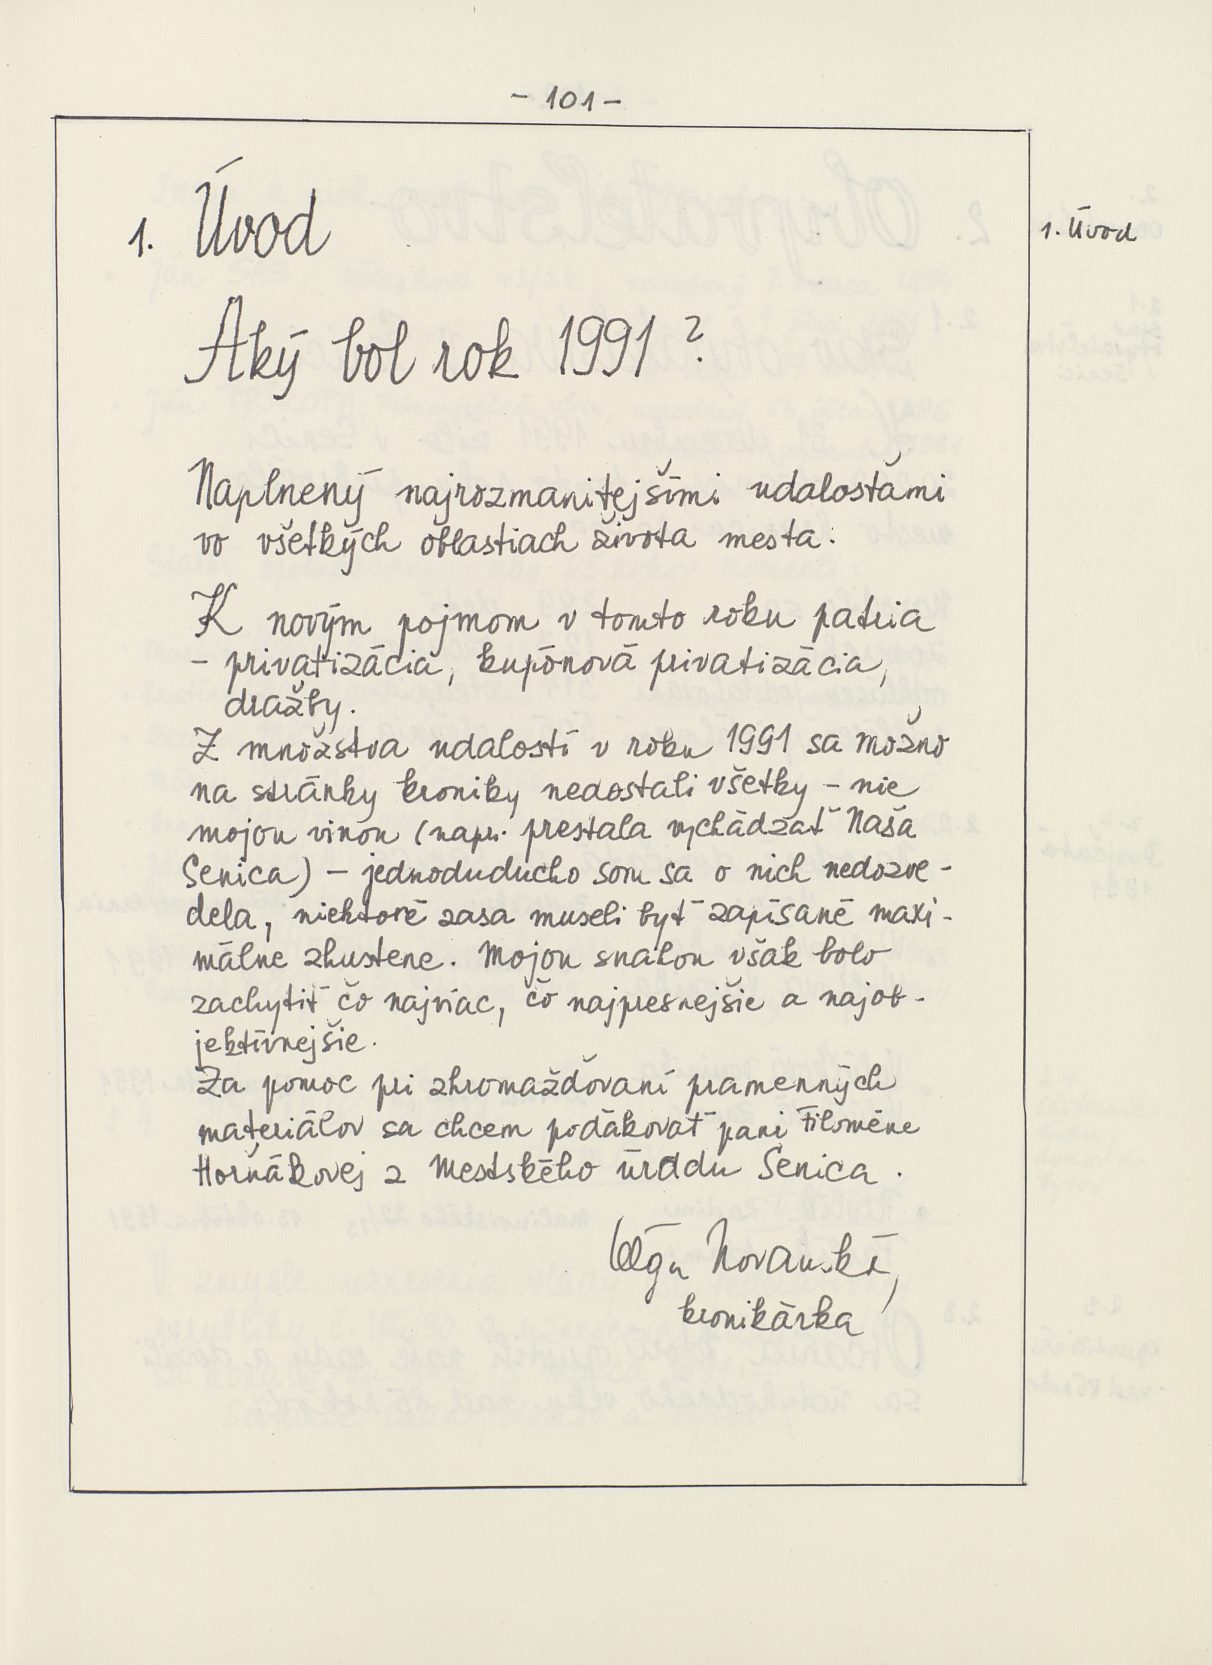 - 101 -
1. Úvod
1. Úvod
Aký bol rok 1991?
Naplnený najrozmanitejšími udalosťami
vo všetkých oblastiach života mesta.
K novým pojmom v tomto roku patria
- privatizácia, kupónová privatizácia,
dražby.
Z množstva udalostí v roku 1991 sa možno
na stránky kroniky nedostali všetky - nie
mojou vinou (napr. prestala vychádzať Naša
Senica) - jednoduducho som sa o nich nedozve-
dela, niektoré zasa museli byť zapísané maxi-
málne zhustene. Mojou snahou však bolo
zachytiť čo najviac, čo najpresnejšie a najob-
jektívnejšie.
Za pomoc pri zhromažďovaní pramenných
materiálov sa chcem poďakovať pani Filoméne
Horňákovej z Mestského úradu Senica.
Oľga
kronikárka